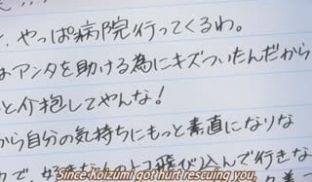 、やっぱ病院行ってくるわ。
はアンタを助ける為にキズついたんだから
と介抱してやんな!
から自分の気持ちにもっと素直になりな
Since Koizumi got hurt rescuing you,
で、好きな
飛び込んで行きな